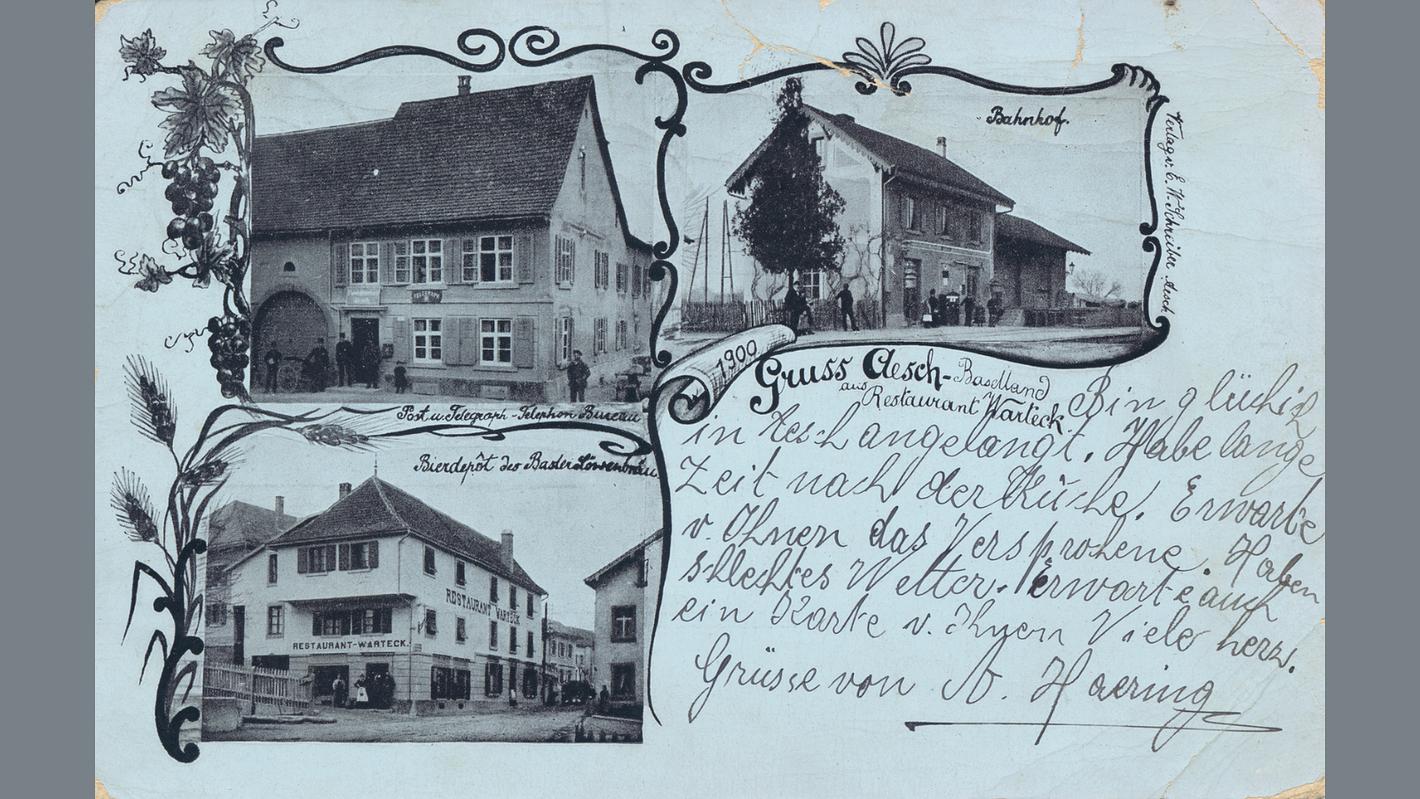 Bahnhof.
Verlag v. E. W. Schreiber Aesch
TELEGRAPH
Post u. Telegraph - Telephon Bureau
1900
Gruss aus Aesch - Baselland
Restaurant Warteck
Bierdepôt des Basler Löwenbräu
RESTAURANT WARTECK
RESTAURANT-WARTECK.
Bin glücklich
in Aesch angelangt. Habe lange
Zeit nach der Küche. Erwarte
v. Ihnen das Versprohene. Haben
schlechtes Wetter. Erwarte auch
ein Karte v. Ihnen Viele herz.
Grüsse von A. Haering